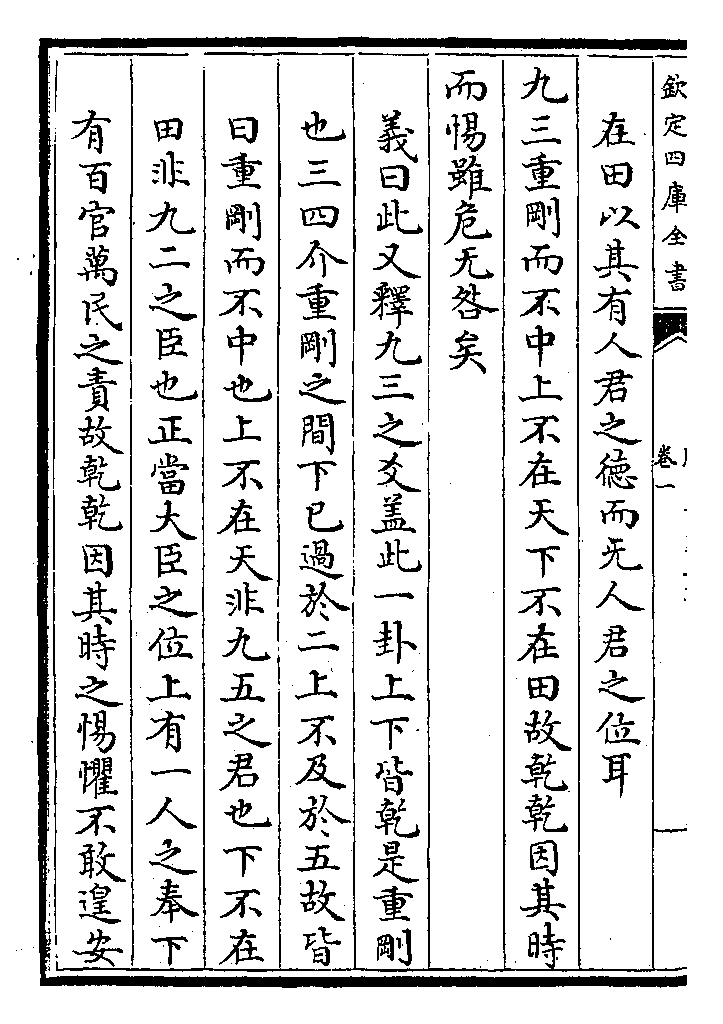 欽定四庫全書
卷一
在田以其有人君之德而无人君之位耳
九三重剛而不中上不在天下不在田故乾乾因其時
而惕雖危无咎矣
義曰此又釋九三之爻盖此一卦上下皆乾是重剛
也三四介重剛之間下已過於二上不及於五故皆
曰重剛而不中也上不在天非九五之君也下不在
田非九二之臣也正當大臣之位上有一人之奉下
有百官萬民之責故乾乾因其時之惕懼不敢遑安